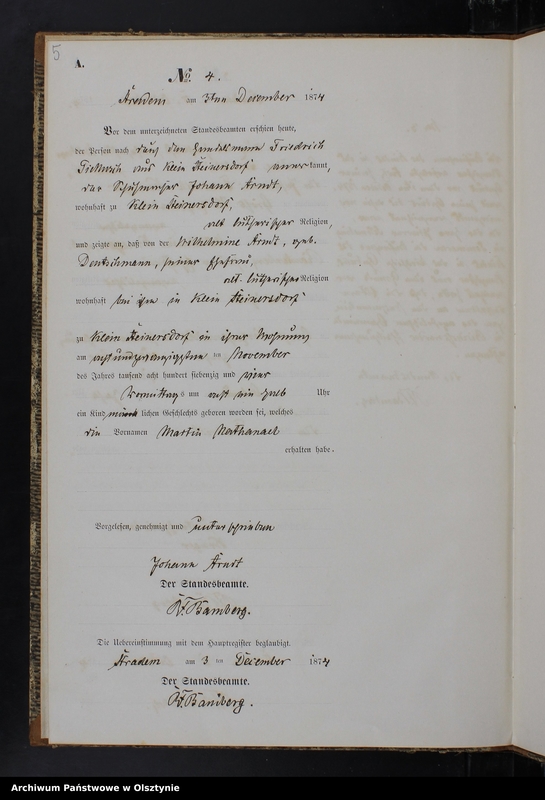 5
A.
No. 4.
am 3ten December 1874
Vor dem unterzeichneten Standesbeamten erschien heute,
der Person nach durch den Handelsmann Friedrich
aus Klein Heinersdorf anerkannt,
der Schuhmacher Johann Arndt,
wohnhaft zu Klein Heinersdorf,
alt lutherischer Religion,
und zeigte an, daß von der Wilhelmine Arndt, geb.
Deutschmann, seiner Ehefrau,
alt lutherischer Religion
wohnhaft bei ihm in Klein Heinersdorf
zu Klein Heinersdorf in ihrer Wohnung
am achtundzwanzigsten ten November
des Jahres tausend acht hundert siebenzig und vier
Vormittags um acht ein halb Uhr
ein Kind männlichen Geschlechts geboren worden sei, welches
die Vornamen Martin Nathanael
erhalten habe.
Vorgelesen, genehmigt und unterschrieben
Johann Arndt
Der Standesbeamte.
Bamberg.
Die Uebereinstimmung mit dem Hauptregister beglaubigt.
am 3 ten December 1874
Der Standesbeamte.
Bamberg.
Archiwum Państwowe w Olsztynie